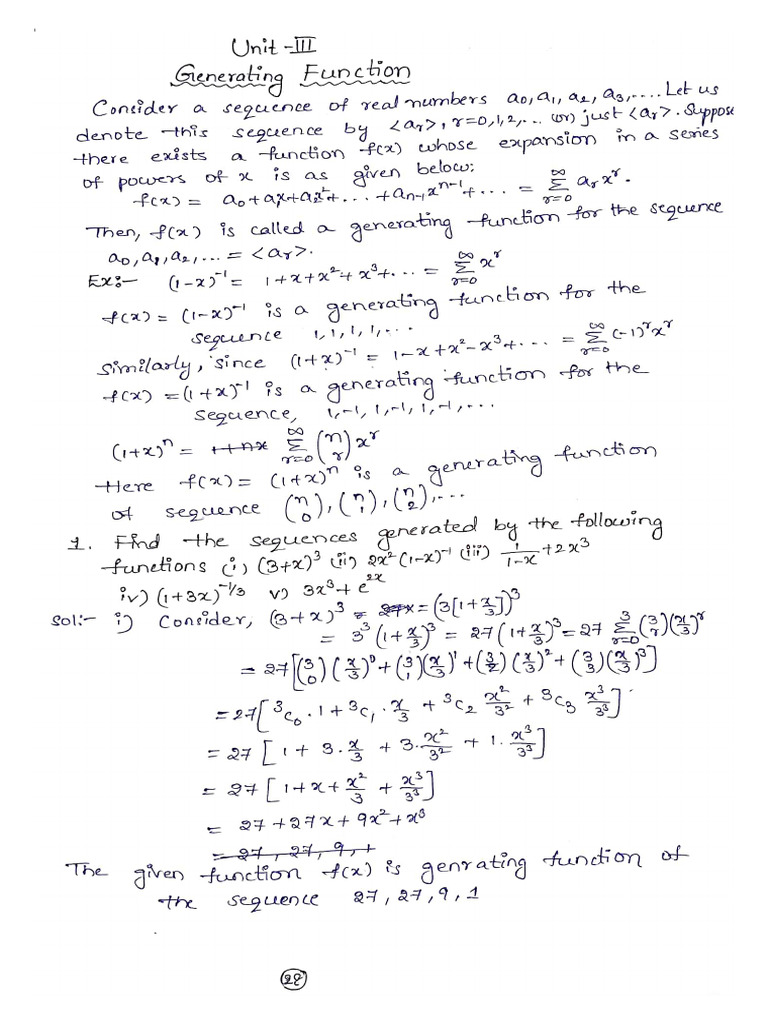 Unit-III
Generating Function
Consider a sequence of real numbers a₀, a₁, a₂, a₃, .... Let us
denote this sequence by <aᵣ>, r=0,1,2,... (or) just <aᵣ>. Suppose
there exists a function f(x) whose expansion in a series
of powers of x is as given below:
f(x) = a₀+a₁x+a₂x²+...+aₙ₋₁xⁿ⁻¹+... = ∑_{r=0}^{∞} aᵣxʳ.
Then, f(x) is called a generating function for the sequence
a₀, a₁, a₂, ... = <aᵣ>.
Ex:- (1-x)⁻¹ = 1+x+x²+x³+... = ∑_{r=0}^{∞} xʳ
f(x) = (1-x)⁻¹ is a generating function for the
sequence 1,1,1,1,...
Similarly, since (1+x)⁻¹ = 1-x+x²-x³+... = ∑_{r=0}^{∞} (-1)ʳxʳ
f(x) = (1+x)⁻¹ is a generating function for the
sequence, 1,-1,1,-1,1,-1,...
(1+x)ⁿ = 1+nx ∑_{r=0}^{∞} (n r) xʳ
Here f(x) = (1+x)ⁿ is a generating function
of sequence (n 0), (n 1), (n 2), ...
1. Find the sequences generated by the following
functions (i) (3+x)³ (ii) 2x²(1-x)⁻¹ (iii) 1/(1-x) + 2x³
iv) (1+3x)^(-1/3) v) 3x³+e^(2x)
Sol:- i) Consider, (3+x)³ = 27x = (3[1+x/3])³
= 3³(1+x/3)³ = 27(1+x/3)³ = 27 ∑_{r=0}^{3} (3 r)(x/3)ʳ
= 27[(3 0)(x/3)⁰+(3 1)(x/3)¹+(3 2)(x/3)²+(3 3)(x/3)³]
= 27[³C₀·1+³C₁·x/3 + ³C₂ x²/3² + ³C₃ x³/3³]
= 27[1+3·x/3+3·x²/3²+1·x³/3³]
= 27[1+x+x²/3+x³/3³]
= 27+27x+9x²+x³
= 27, 27, 9, 1
The given function f(x) is genrating function of
the sequence 27, 27, 9, 1
28